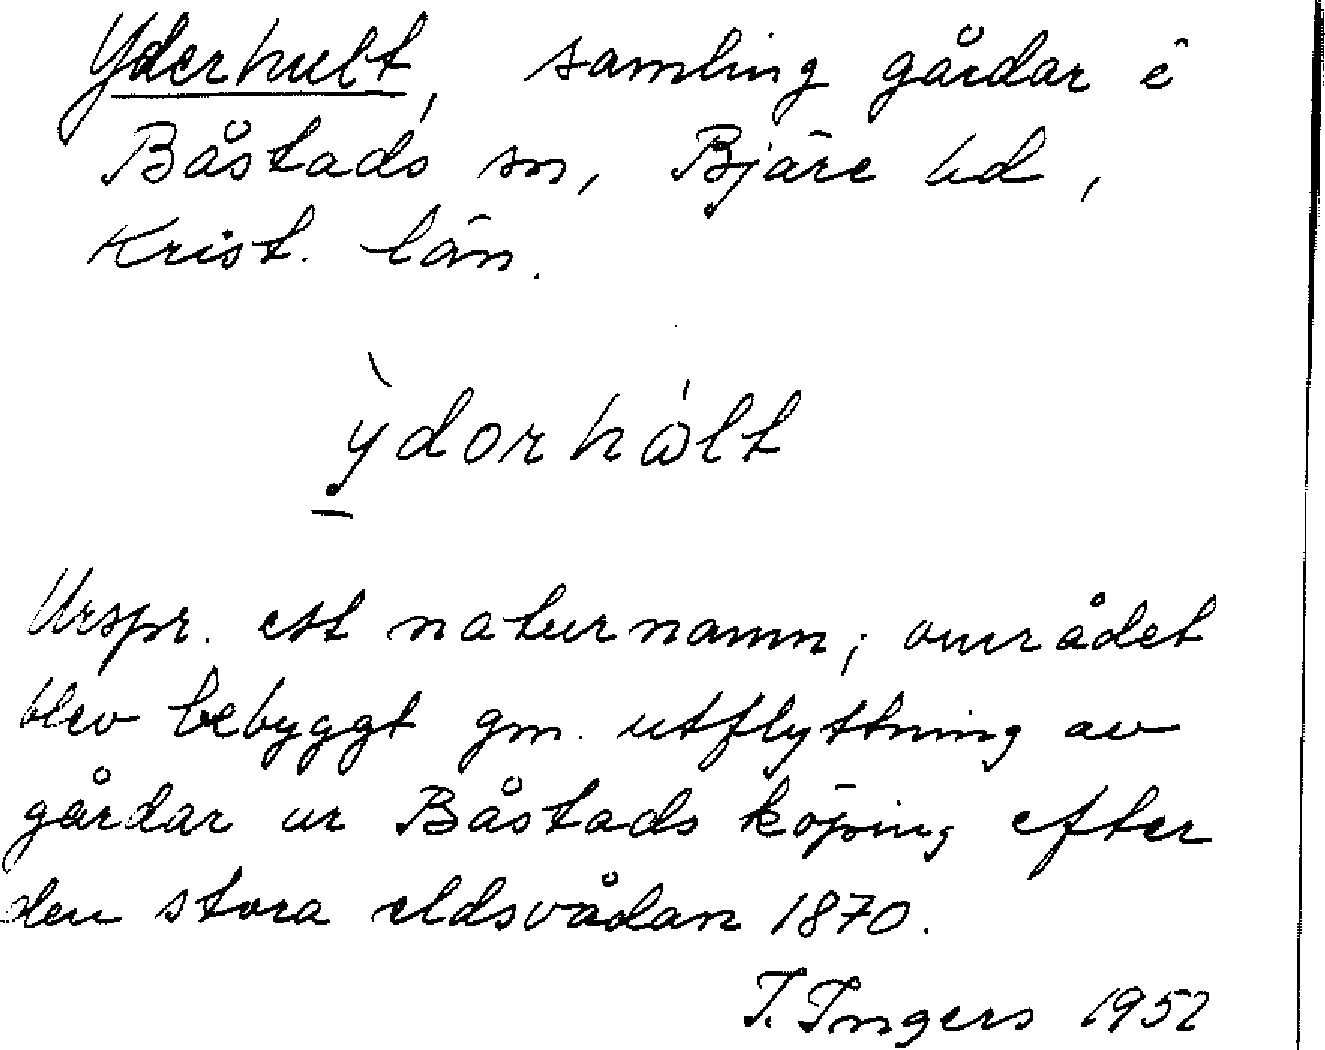 Yderhult, samling gårdar i
Båstads sn, Bjäre hd,
Krist. län.
ỳdorhålt
Urspr. ett naturnamn; området
blev bebyggt gm. utflyttning av
gårdar ur Båstads köping efter
den stora eldsvådan 1870.
I. Ingers 1952